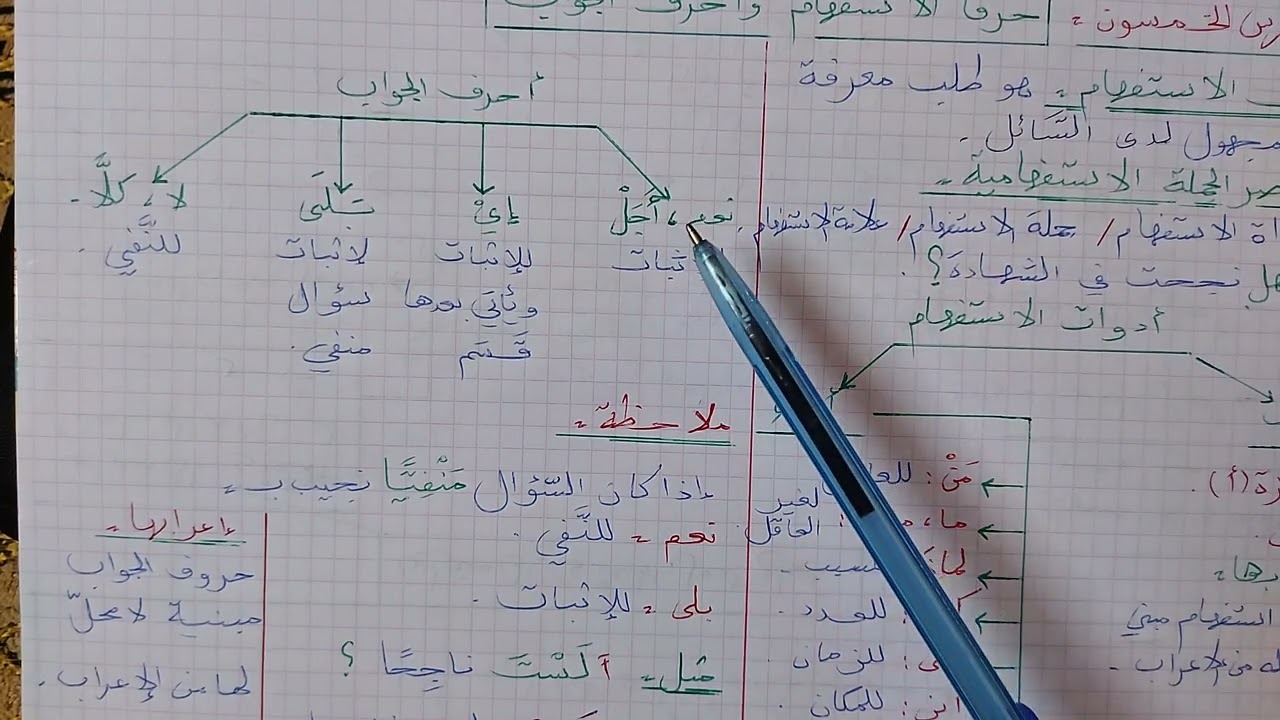 حرفا الاستفهام وأحرف الجواب
الاستفهام: هو طلب معرفة
مجهول لدى السَّائل.
الجملة الاستفهامية:
الاستفهام / جملة الاستفهام / علامة الاستفهام.
هل نجحت في الشهادة؟.
أدوات الاستفهام
مَنْ:
ما، لغير العاقل
للعدد.
للزمان.
أين: للمكان
(أ).
استفهام مبني
من الإعراب.
أحرف الجواب
نعم، أَجَلْ
إِيْ
بَلَى
لا، كَلَّا.
للإثبات
لإثبات
للنَّفي.
ويأتي بعدها
سؤال
قَسَم
منفي.
ملاحظة:
إذا كان السّؤال مَنْفِيًّا نجيب بـ:
نعم: للنَّفي.
بلى: للإثبات.
مثل: أَلَسْتَ ناجِحًا ؟
إعرابها:
حروف الجواب
مبنية لا محلّ
لها من الإعراب.